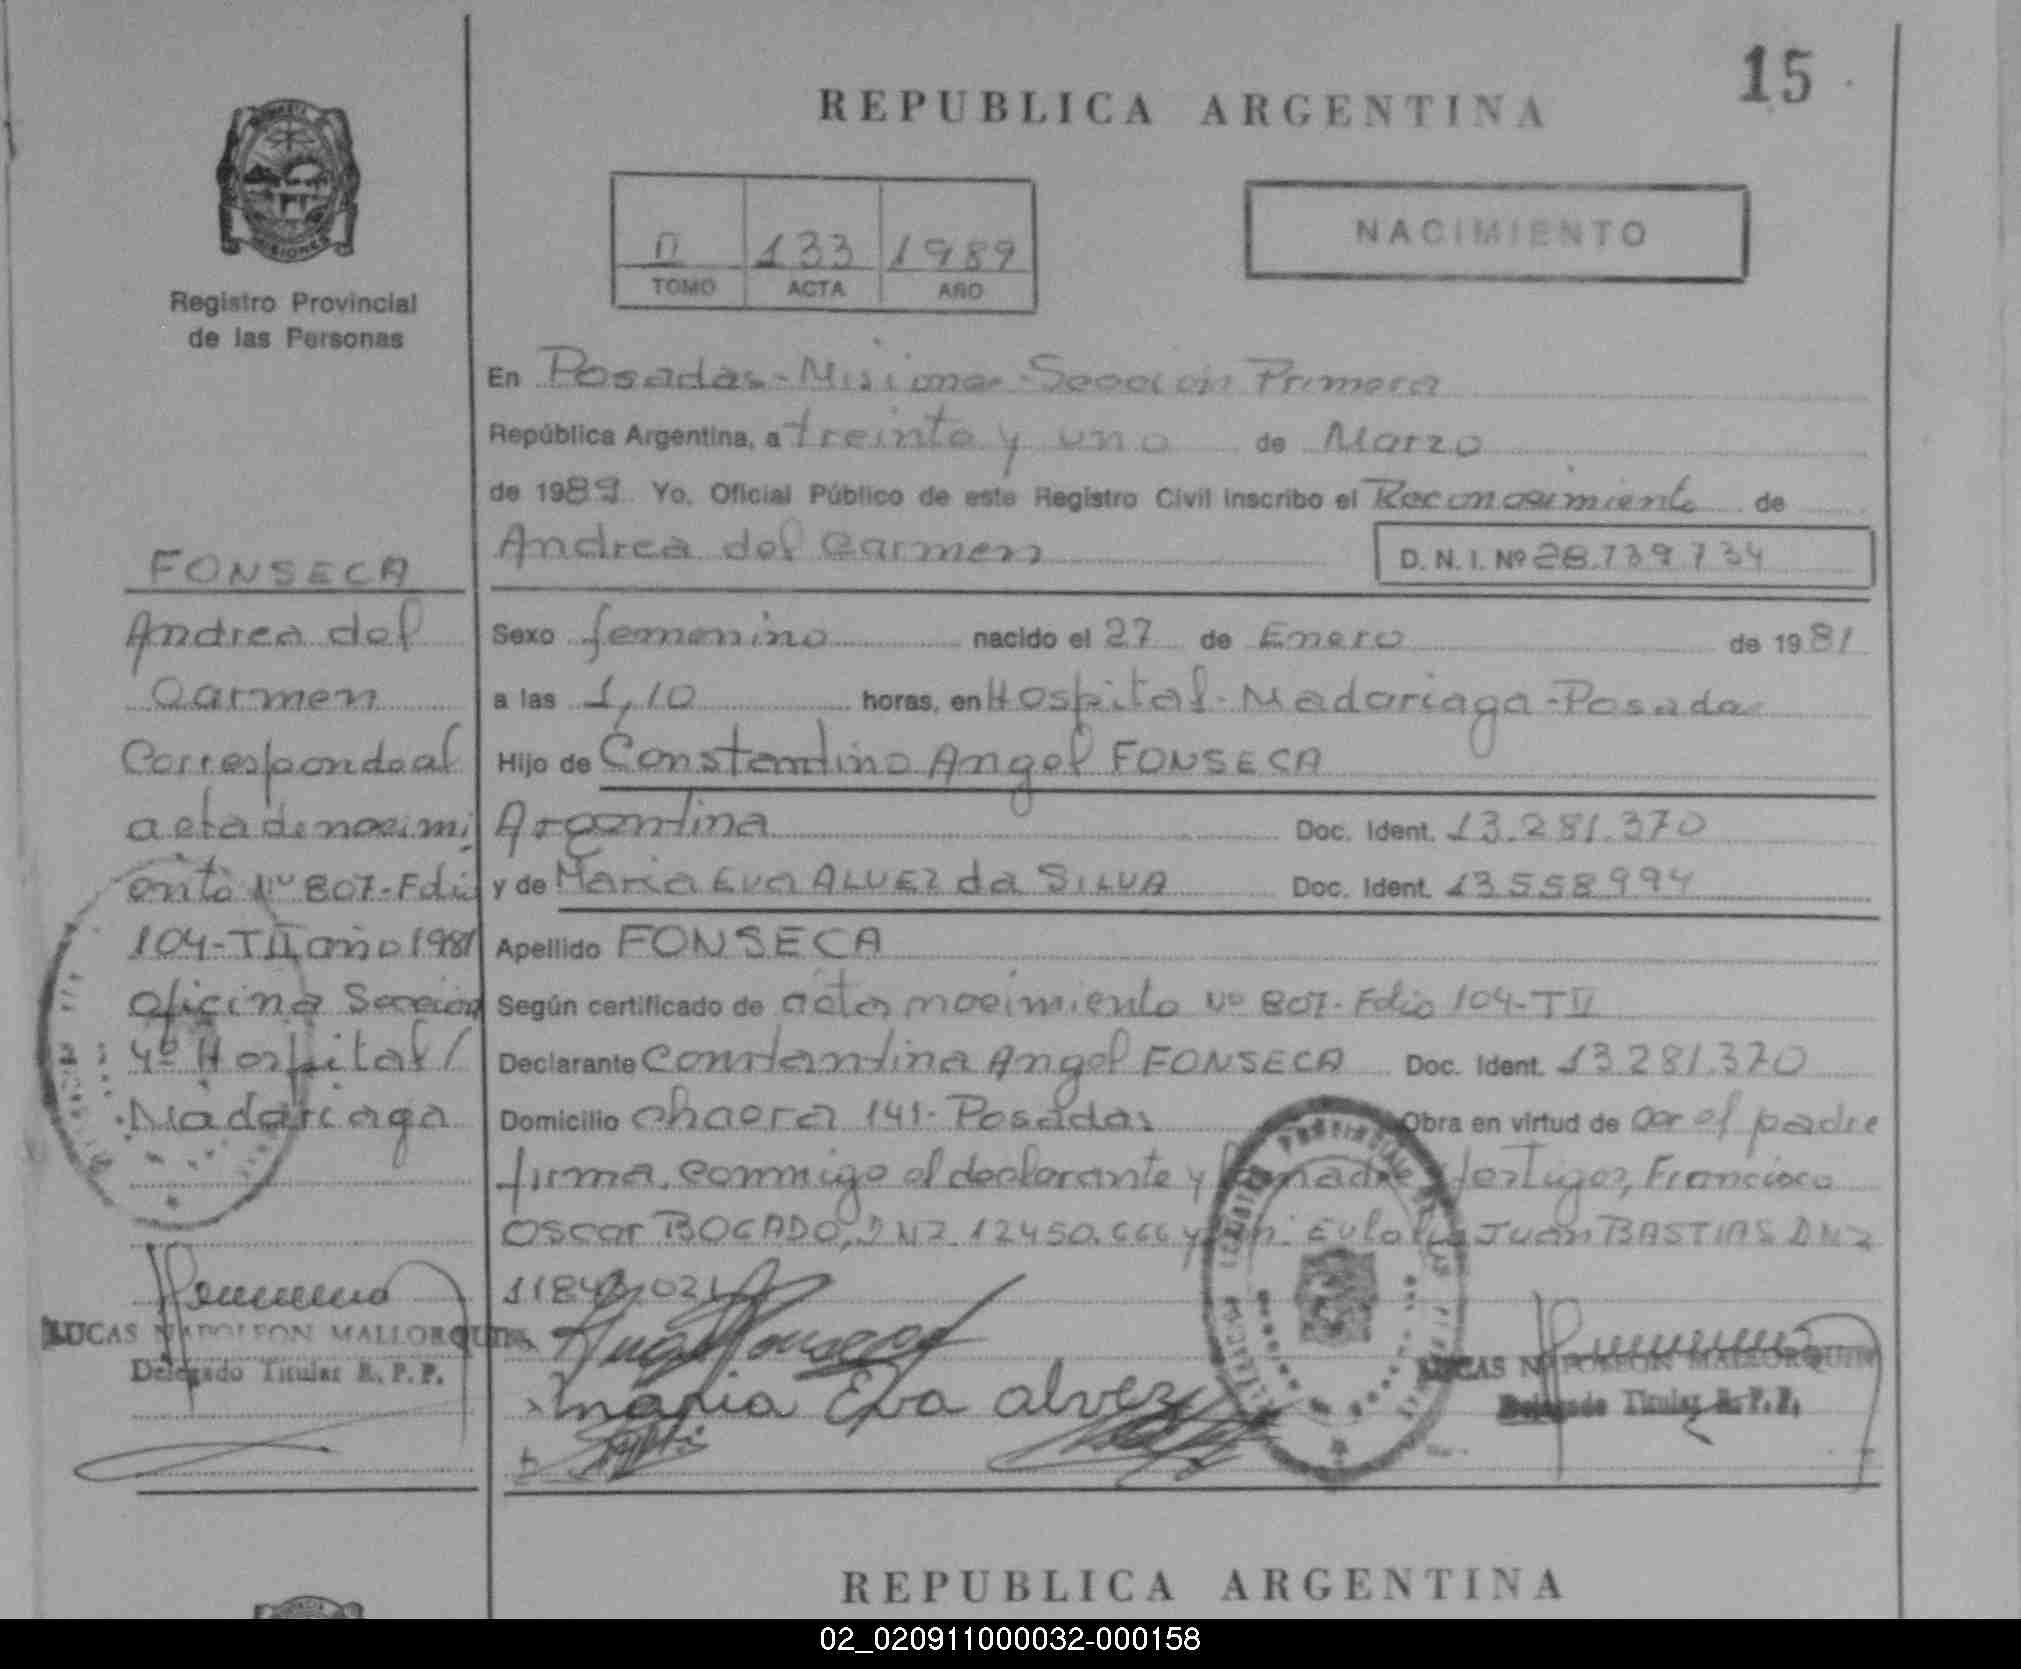 15
REPUBLICA ARGENTINA
II 133 1989
TOMO ACTA AÑO
NACIMIENTO
MISIONES
Registro Provincial
de las Personas
En Posadas-Misiones-Sección Primera
República Argentina, a treinta y uno de Marzo
de 1989 Yo, Oficial Público de este Registro Civil inscribo el Reconocimiento de
Andrea del Carmen
D. N. I. Nº 28.739.734
Sexo femenino nacido el 27 de Enero de 1981
a las 1,10 horas, en Hospital-Madariaga-Posadas
Hijo de Constantino Angel FONSECA
Argentina Doc. Ident. 13.281.370
y de Maria Eva ALVEZ da SILVA Doc. Ident. 13558994
Apellido FONSECA
Según certificado de acta nacimiento Nº 807-Folio 104-TII
Declarante Constantino Angel FONSECA Doc. Ident. 13281.370
Domicilio chacra 141-Posadas Obra en virtud de ser el padre
firma conmigo el declarante y la madre Testigos, Francisco
Oscar BOGADO, DNI 12450.666 y Juan BASTIAS DNI
FONSECA
Andrea del
Carmen
Corresponde al
acta de nacimi
ento Nº 807-Folio
104-TII año 1981
Oficina Sección
4º Hospital/
Madariaga
LUCAS NAPOLEON MALLORQUIN
Delegado Titular R. P. P.
Maria Eva Alvez
LUCAS NAPOLEON MALLORQUIN
Delegado Titular R. P. P.
REPUBLICA ARGENTINA
02_020911000032-000158